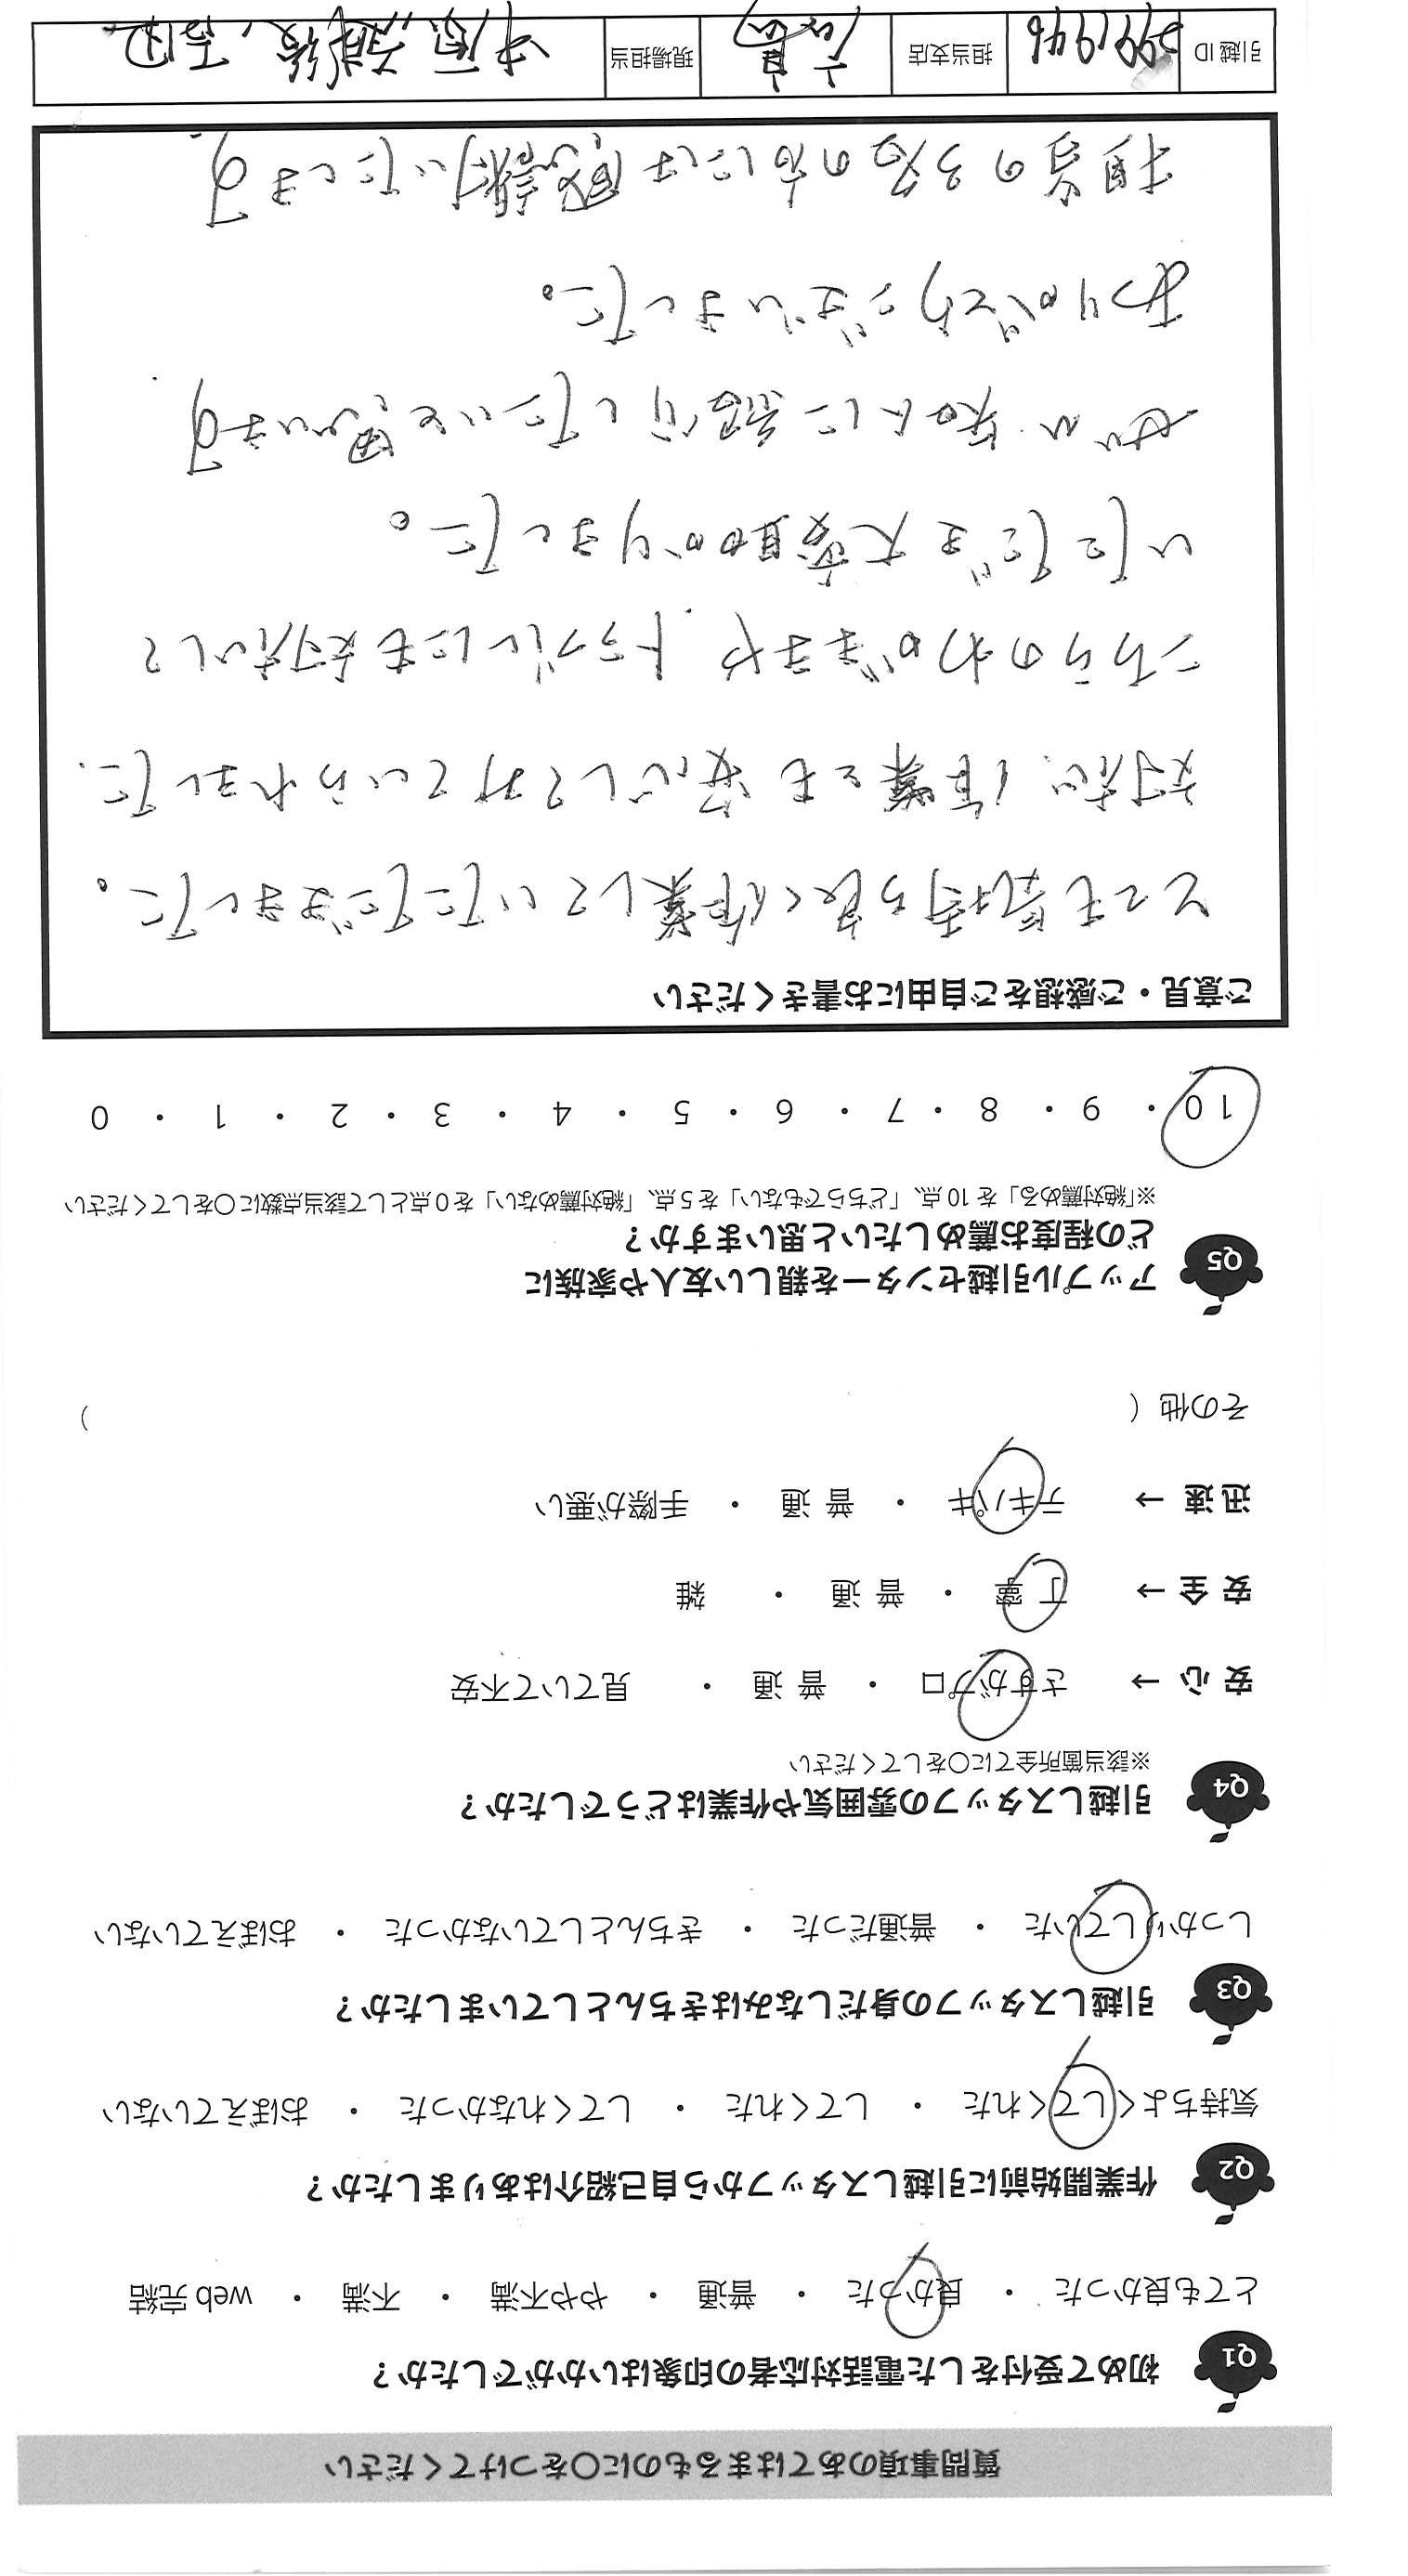 質問事項のあてはまるものに○をつけてください
Q1 初めて受付をした電話対応者の印象はいかがでしたか？
とても良かった ・ 良かった ・ 普通 ・ やや不満 ・ 不満 ・ web 完結
Q2 作業開始前に引越しスタッフから自己紹介はありましたか？
気持ちよくしてくれた ・ してくれた ・ してくれなかった ・ おぼえていない
Q3 引越しスタッフの身だしなみはきちんとしていましたか？
しっかりしていた ・ 普通だった ・ きちんとしていなかった ・ おぼえていない
Q4 引越しスタッフの雰囲気や作業はどうでしたか？
※該当箇所全てに○をしてください
安心 → さすがプロ ・ 普通 ・ 見ていて不安
安全 → 丁寧 ・ 普通 ・ 雑
迅速 → テキパキ ・ 普通 ・ 手際が悪い
その他（ ）
Q5 アップル引越センターを親しい友人や家族に
どの程度お薦めしたいと思いますか？
※「絶対薦める」を 10 点、「どちらでもない」を 5 点、「絶対薦めない」を 0 点として該当点数に○をしてください
10 ・ 9 ・ 8 ・ 7 ・ 6 ・ 5 ・ 4 ・ 3 ・ 2 ・ 1 ・ 0
ご意見・ご感想をご自由にお書きください
とても気持ち良く作業していただきました。
対応、作業とも安心してみていられました.
こちらのわがままや、トラブルにも対応して
いただき大変助かりました。
ぜひ、知人に紹介したいと思います.
ありがとうございました。
担当の3名の方には感謝いたします。
引越 ID 担当支店 現場担当